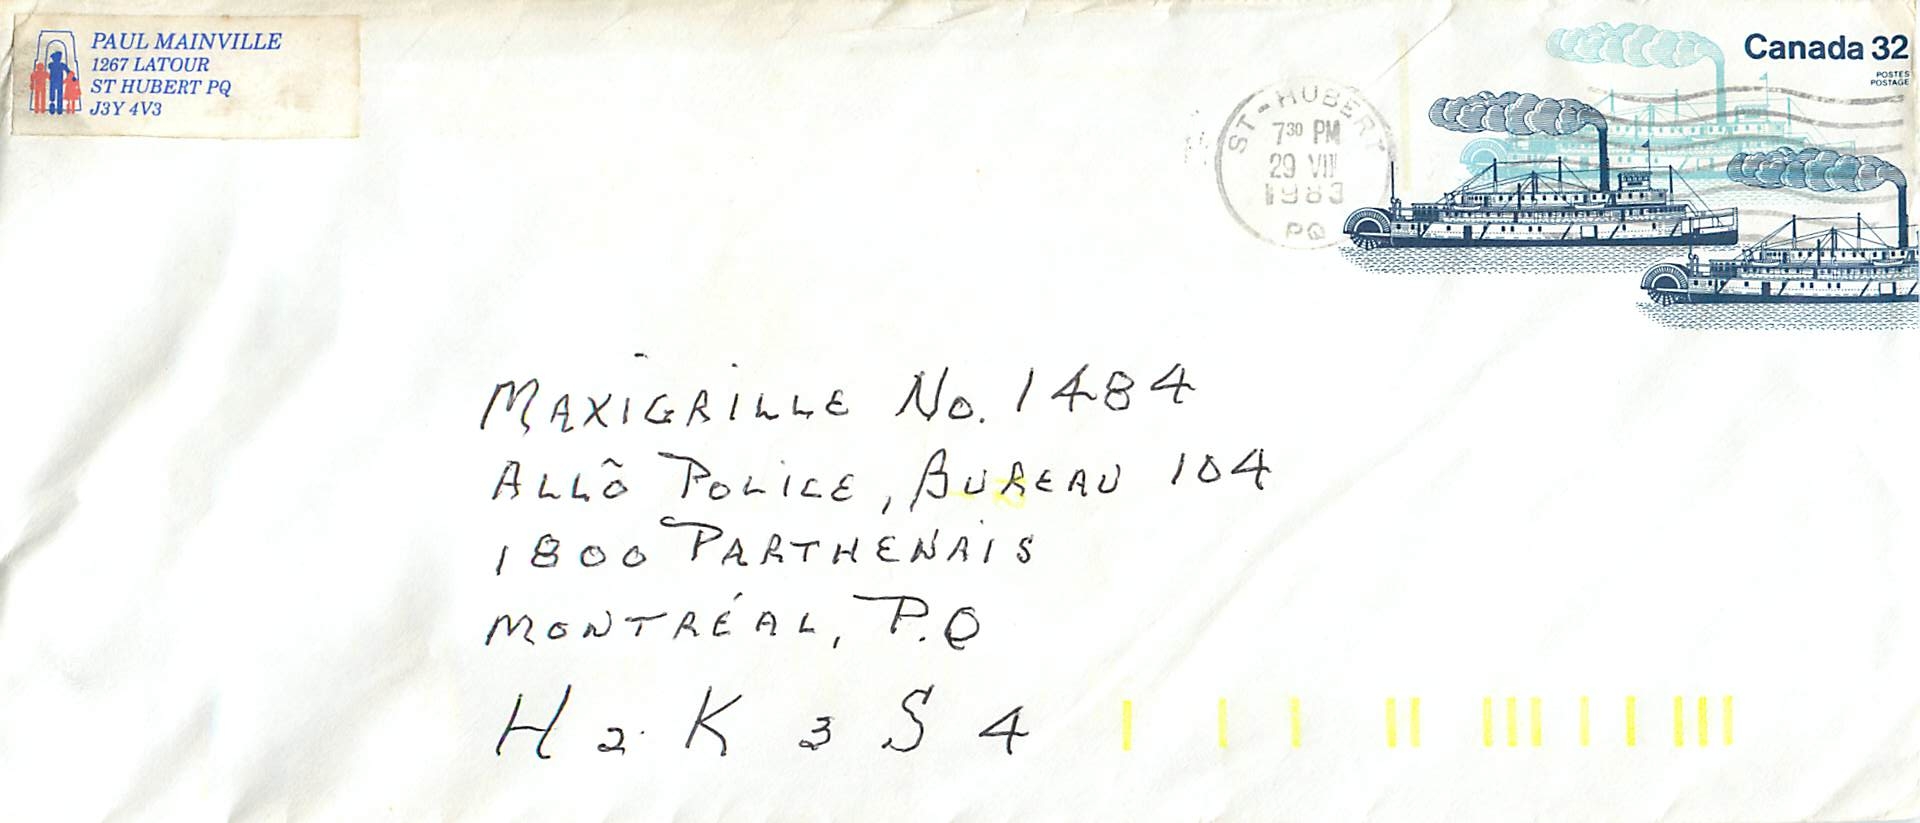 PAUL MAINVILLE
1267 LATOUR
ST HUBERT PQ
J3Y 4V3
Canada 32
POSTES
POSTAGE
ST-HUBERT
7³⁰ PM
29 VIII
1983
PQ
MAXIGRILLE No. 1484
ALLÔ POLICE, BUREAU 104
1800 PARTHENAIS
MONTRÉAL, P.Q
H2K 3S4